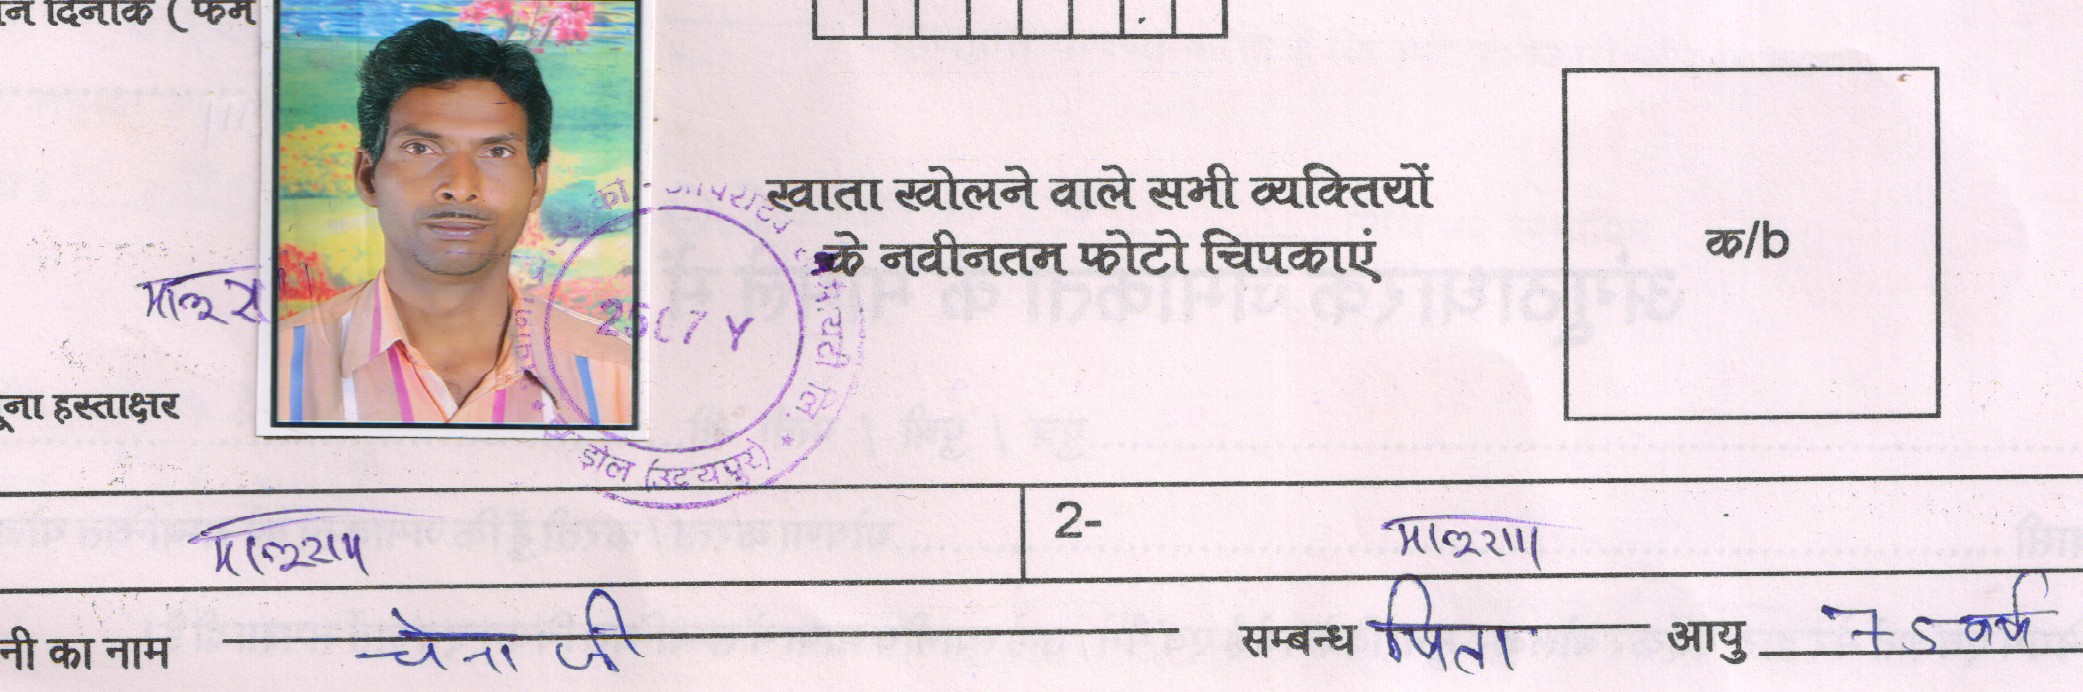 न दिनांक ( फर्म
खाता खोलने वाले सभी व्यक्तियों
के नवीनतम फोटो चिपकाएं
क/b
मालुरा
2507 Y
झोल (उदयपुर)
ूना हस्ताक्षर
मालुराम
2-
मालुराम
नी का नाम चेना जी सम्बन्ध पिता आयु 75 वर्ष